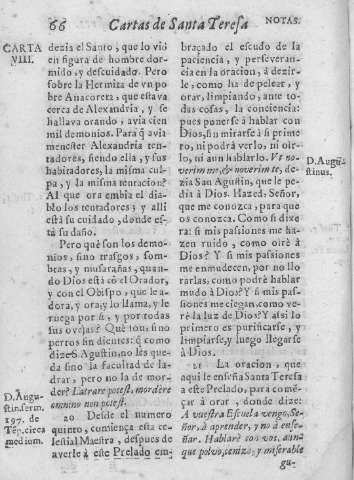 66 Cartas de Santa Teresa NOTAS.
CARTA
VIII.
dezia el Santo, que lo viò
en figura de hombre dormido,
y descuidado. Pero
sobre la Hermita de vn pobre
Anacoreta, que estava
cerca de Alexandria, y se
hallava orando, avia cien
mil demonios. Para q̃ avia
menester Alexandria tentadores,
siendo ella, y sus
habitadores, la misma culpa,
y la misma tentacion?
Al que ora embia el diablo
los tentadores; y alli
està su cuidado, donde està
su daño.
Pero què son los demonios,
sino trasgos, sombras,
y musarañas, quando
Dios està cõ el Orador,
y con el Obispo, que le adora,
y ora, y lo llama, y le
ruega por si, y por todas
sus ovejas? Què son, sino
perros sin dientes; q̃ como
dize S. Agustin, no les queda
sino la facultad de ladrar,
pero no la de morder?
Latrare potest, mordere
omnino non potest.
D. Augustin.
serm.
197. de
Tẽp. circa
medium.
20 Desde el numero
quinto, comiença esta celestial
Maestra, despues de
averle à este Prelado embraçado
el escudo de la
paciencia, y perseverancia
en la oracion, à dezirle,
como ha de pelear, y
orar, limpiando, ante todas
cosas, la conciencia:
pues ponerse à hablar con
Dios, sin mirarse à si primero,
ni podrà verlo, ni oirlo,
ni aun hablarlo. Vt noverim
me, & noverim te, dezia
San Agustin, que le pedia
à Dios. Hazed, Señor,
que me conozca, para que
os conozca. Como si dixera:
si mis passiones me hazen
ruido, como oirè à
Dios? Y si mis passiones
me enmudecen, por no llorarlas:
como podrè hablar
mudo à Dios? Y si mis passiones
me ciegan, como verè
la luz de Dios? Y assi lo
primero es purificarse, y
limpiarse, y luego llegarse
à Dios.
D. Augustinus.
21 La oracion, que
aqui le enseña Santa Teresa
a este Prelado, para començar
à orar, donde dize:
A vuestra Escuela vengo, Señor,
à aprender, y no à enseñar.
Hablarè con vos, aunque
polvo, ceniza, y miserable
gu-